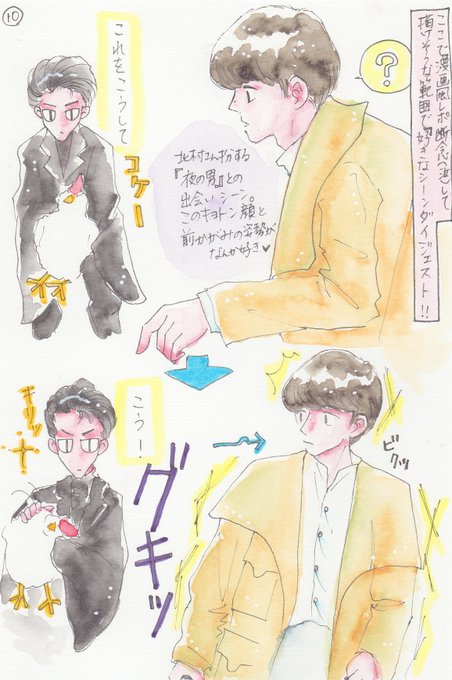 ⑩
ここで漫画風レポ断念(涙)して
描けそうな範囲で好きなシーンダイジェスト!!
?
これをこうして
コケー
北村さん扮する
『夜の男』との
出会いシーン。
このキョトン顔と
前かがみの姿勢が
なんか好き♥
こうー!
キリッ
グキッ
ビクッ